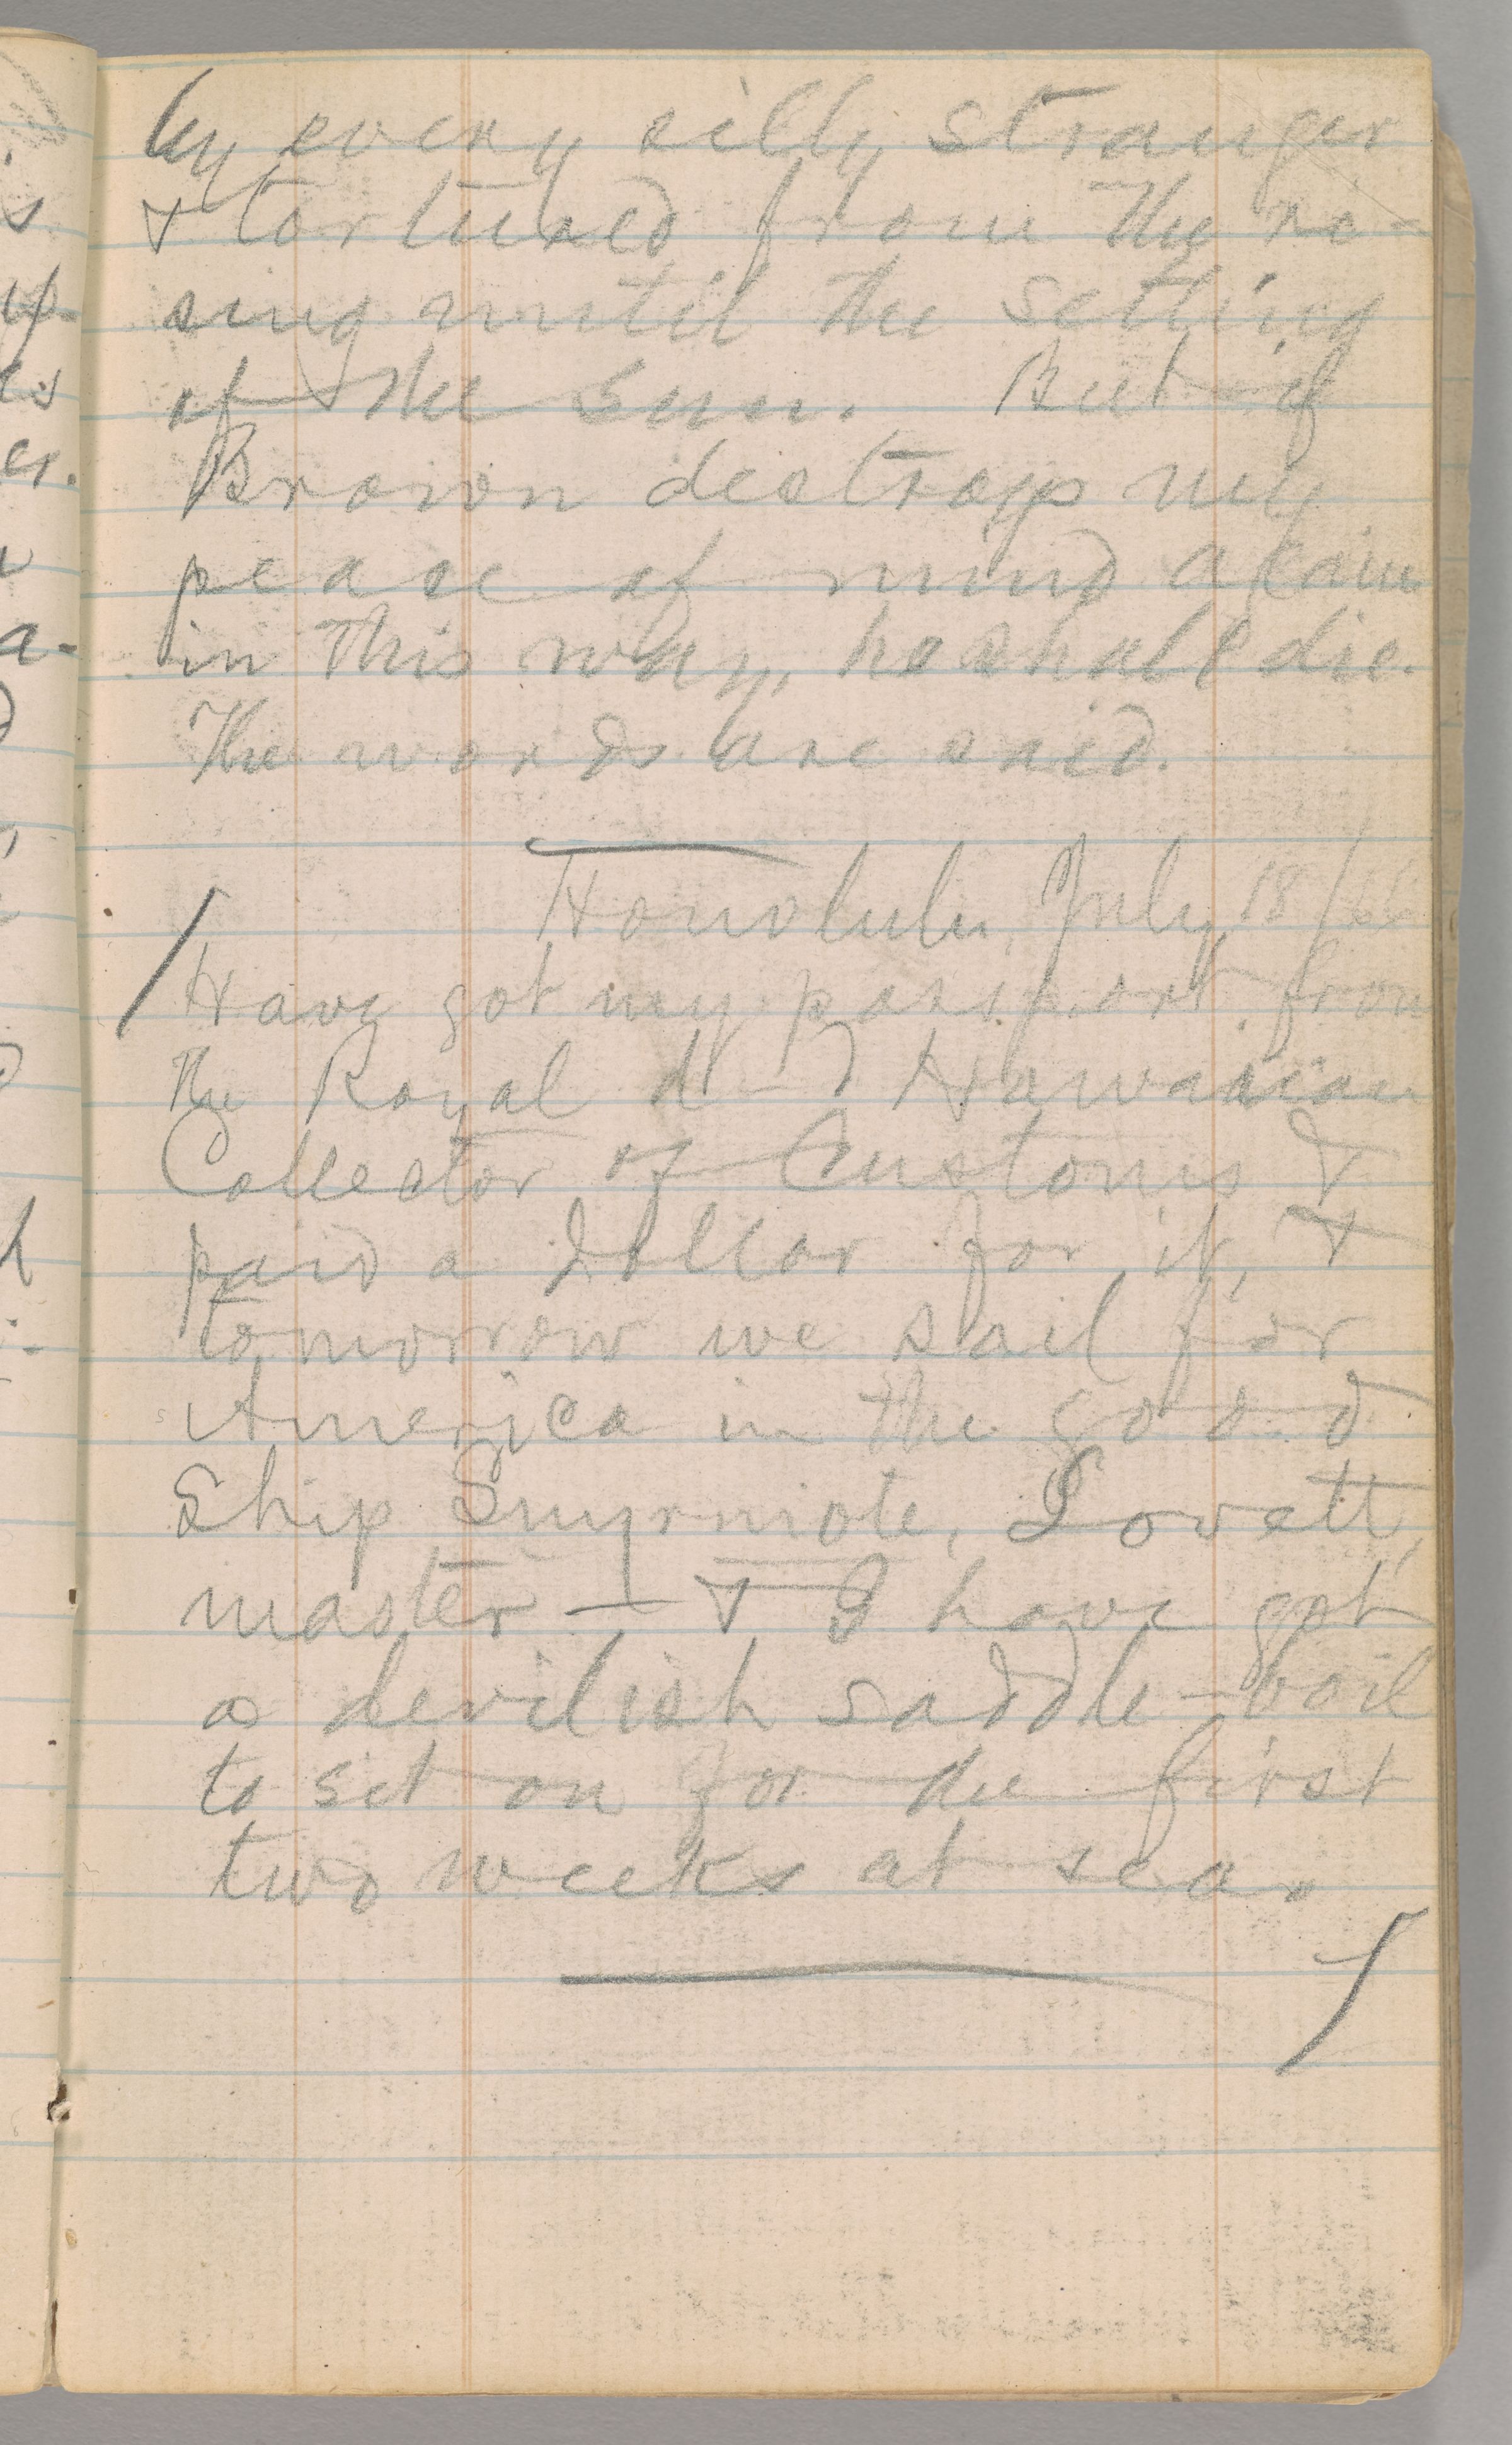 by every silly stranger
& tortured from the ri-
sing until the setting
of the sun. But if
Brown distroys my
peace of mind again
in this way, he shall die.
The words are said.
Honolulu, July 18/66
Have got my passport from
the Royal d—d Hawaiian
Collector of Customs &
paid a dollar for it, &
tomorrow we sail for
America in the good
Ship Smyrniote, Lovett,
master — & I have got
a devilish saddle-boil
to sit on for the first
two weeks at sea.